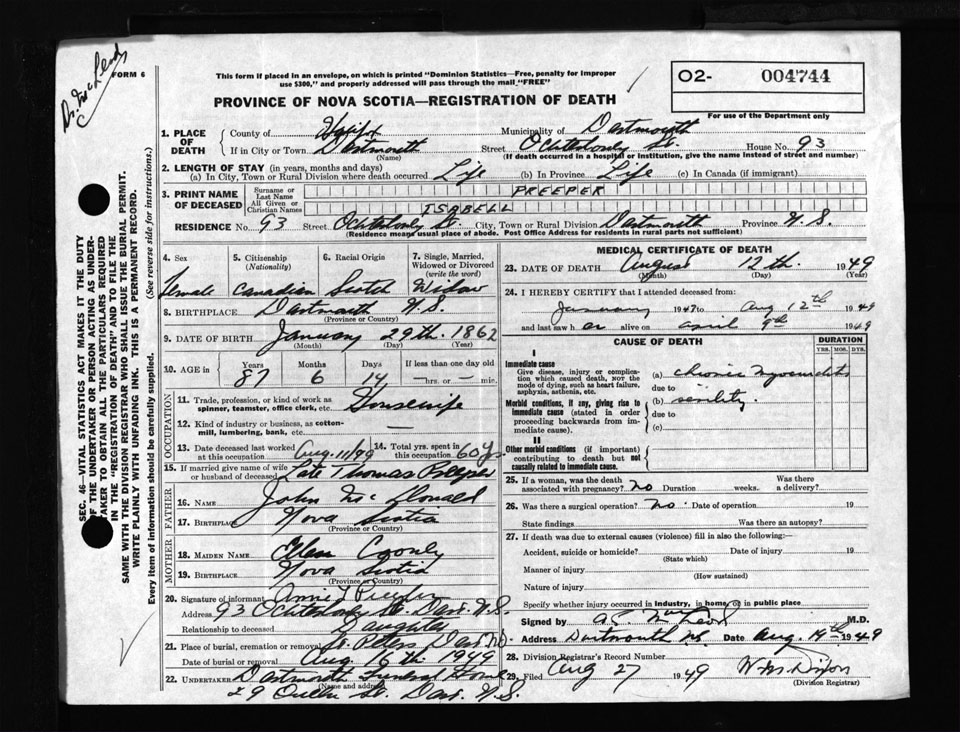 Dr. McLeod
FORM 6
This form if placed in an envelope, on which is printed "Dominion Statistics—Free, penalty for improper
use $300," and properly addressed will pass through the mail "FREE"
02- 004744
For use of the Department only
PROVINCE OF NOVA SCOTIA—REGISTRATION OF DEATH
SEC. 46—VITAL STATISTICS ACT MAKES IT THE DUTY
OF THE UNDERTAKER OR PERSON ACTING AS UNDER-
TAKER TO OBTAIN ALL THE PARTICULARS REQUIRED
IN THE "REGISTRATION OF DEATH" AND TO FILE THE
SAME WITH THE DIVISION REGISTRAR WHO SHALL ISSUE THE BURIAL PERMIT.
WRITE PLAINLY WITH UNFADING INK. THIS IS A PERMANENT RECORD.
Every item of information should be carefully supplied. (See reverse side for instructions.)
1. PLACE OF DEATH County of Halifax Municipality of Dartmouth
If in City or Town Dartmouth Street Ochterloney St. House No. 93
(Name) (If death occurred in a hospital or institution, give the name instead of street and number)
2. LENGTH OF STAY (in years, months and days)
(a) In City, Town or Rural Division where death occurred Life (b) In Province Life (c) In Canada (if immigrant)
3. PRINT NAME OF DECEASED Surname or Last Name PREEPER
All Given or Christian Names ISABELL
RESIDENCE No. 93 Street Ochterloney St. City, Town or Rural Division Dartmouth Province N.S.
(Residence means usual place of abode. Post Office Address for residents in rural parts not sufficient)
4. Sex 5. Citizenship (Nationality) 6. Racial Origin 7. Single, Married, Widowed or Divorced (write the word)
Female Canadian Scotch Widow
8. BIRTHPLACE Dartmouth N.S.
(Province or Country)
9. DATE OF BIRTH January 29th. 1862
(Month) (Day) (Year)
10. AGE in Years Months Days If less than one day old
87 6 14 —hrs. or — min.
OCCUPATION
11. Trade, profession, or kind of work as spinner, teamster, office clerk, etc. Housewife
12. Kind of industry or business, as cotton-mill, lumbering, bank, etc. —
13. Date deceased last worked at this occupation Aug. 11/49 14. Total yrs. spent in this occupation 60 yrs
15. If married give name of wife or husband of deceased Late Thomas Preeper
FATHER
16. NAME John McDonald
17. BIRTHPLACE Nova Scotia
(Province or Country)
MOTHER
18. MAIDEN NAME Ellen
19. BIRTHPLACE Nova Scotia
(Province or Country)
20. Signature of informant Preeper
Address 93 Ochterloney St. Dart. N.S.
Relationship to deceased Daughter
21. Place of burial, cremation or removal St Peters Dart. N.S.
Date of burial or removal Aug. 16th. 1949
22. UNDERTAKER Dartmouth Funeral Home
(Name and address)
29 Queen St. Dart. N.S.
MEDICAL CERTIFICATE OF DEATH
23. DATE OF DEATH August 12th. 1949
(Month) (Day) (Year)
24. I HEREBY CERTIFY that I attended deceased from:
January 1947 to Aug 12th 1949
and last saw her alive on April 9th 1949
CAUSE OF DEATH DURATION
YRS. MOS. DYS.
I
Immediate cause
Give disease, injury or complication which caused death, not the mode of dying, such as heart failure, asphyxia, asthenia, etc.
(a) Chronic Myocarditis
due to
Morbid conditions, if any, giving rise to immediate cause (stated in order proceeding backwards from immediate cause).
(b) senility
due to
(c)
II
Other morbid conditions (if important) contributing to death but not causally related to immediate cause.
25. If a woman, was the death associated with pregnancy? No Duration weeks. Was there a delivery?
26. Was there a surgical operation? No Date of operation 19
State findings Was there an autopsy?
27. If death was due to external causes (violence) fill in also the following:—
Accident, suicide or homicide? Date of injury 19
(State which)
Manner of injury
(How sustained)
Nature of injury
Specify whether injury occurred in industry, in home, or in public place
Signed by MacLeod M.D.
Address Dartmouth N.S. Date Aug. 14th 1949
28. Division Registrar's Record Number
29. Filed Aug 27 1949
(Division Registrar)